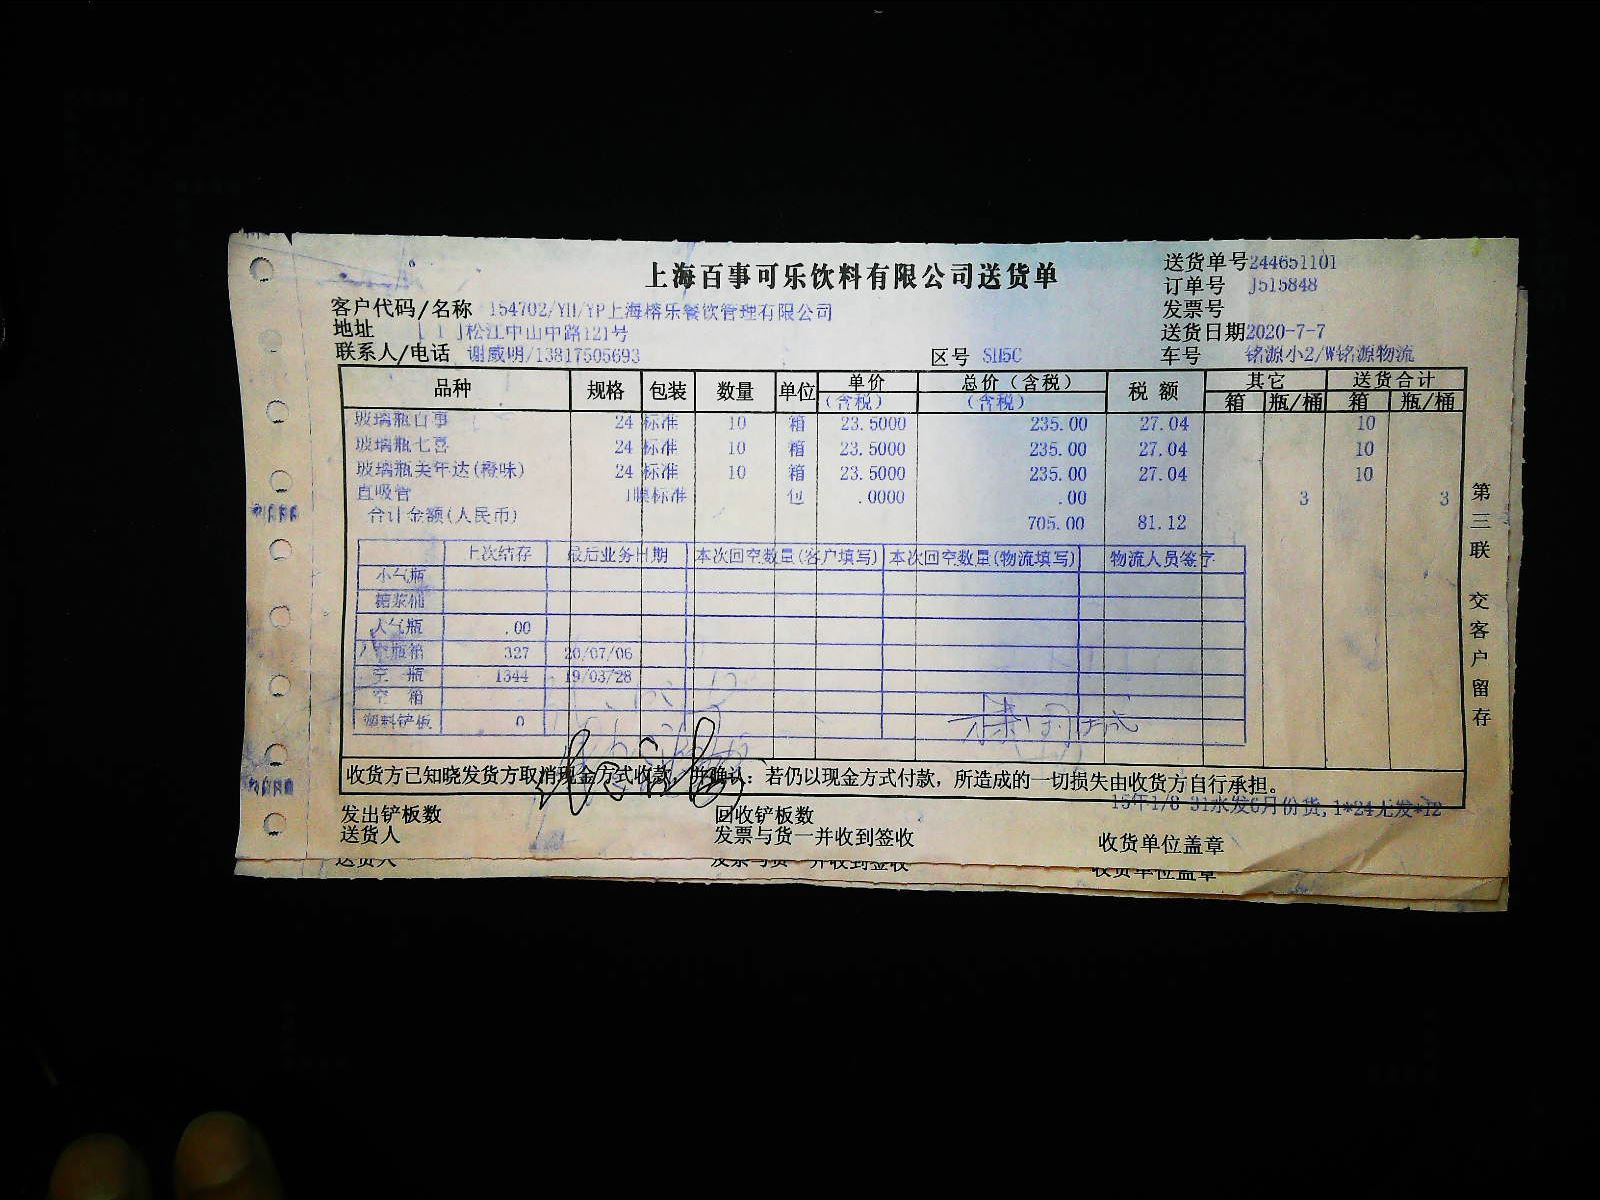 上海百事可乐饮料有限公司送货单
送货单号244651101
订单号 J515848
发票号
送货日期2020-7-7
车号 铭源小2/W铭源物流
客户代码/名称 154702/YH/YP上海榕乐餐饮管理有限公司
地址 [ 1 ]松江中山中路121号
联系人/电话 谢威明/13817505693
区号 SH5C
品种 规格 包装 数量 单位 单价 总价(含税) 税额 其它 送货合计
(含税) (含税) 箱 瓶/桶 箱 瓶/桶
玻璃瓶百事 24 标准 10 箱 23.5000 235.00 27.04 10
玻璃瓶七喜 24 标准 10 箱 23.5000 235.00 27.04 10
玻璃瓶美年达(橙味) 24 标准 10 箱 23.5000 235.00 27.04 10
直吸管 标准 包 .0000 .00 3 3
合计金额(人民币) 705.00 81.12
上次结存 最后业务日期 本次回空数量(客户填写) 本次回空数量(物流填写) 物流人员签字
小气瓶
糖浆桶
大气瓶 .00
空瓶箱 327 20/07/06
空 瓶 1344 19/03/28
空 箱
塑料铲板 0
收货方已知晓发货方取消现金方式收款,并确认:若仍以现金方式付款,所造成的一切损失由收货方自行承担。
15年1/8-31水发6月份货,1*24无发*12
发出铲板数 回收铲板数
送货人 发票与货一并收到签收 收货单位盖章
送货人 发票与货一并收到签收 收货单位盖章
第三联 交客户留存